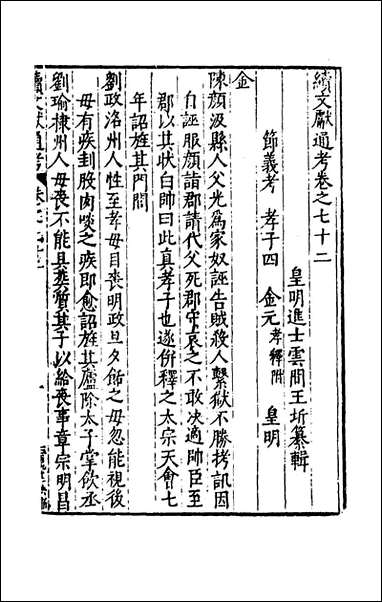 續文獻通考卷之七十二
皇明進士雲間王圻纂輯
節義考 孝子四 金元孝釋附 皇明
金
陳顏汲縣人父光爲家奴誣告賊殺人繫獄不勝拷訊因
自誣服顏詣郡請代父死郡守哀之不敢决適帥臣至
郡以其狀白帥曰此眞孝子也遂併釋之太宗天會七
年詔旌其門閭
劉政洛州人性至孝母目喪明政旦夕舐之母忽能視後
母有疾刲股肉啖之疾即愈詔旌其廬除太子掌飲丞
劉瑜棣州人母喪不能具葬質其子以給喪事章宗明昌
續文獻通考 卷之七十二 一